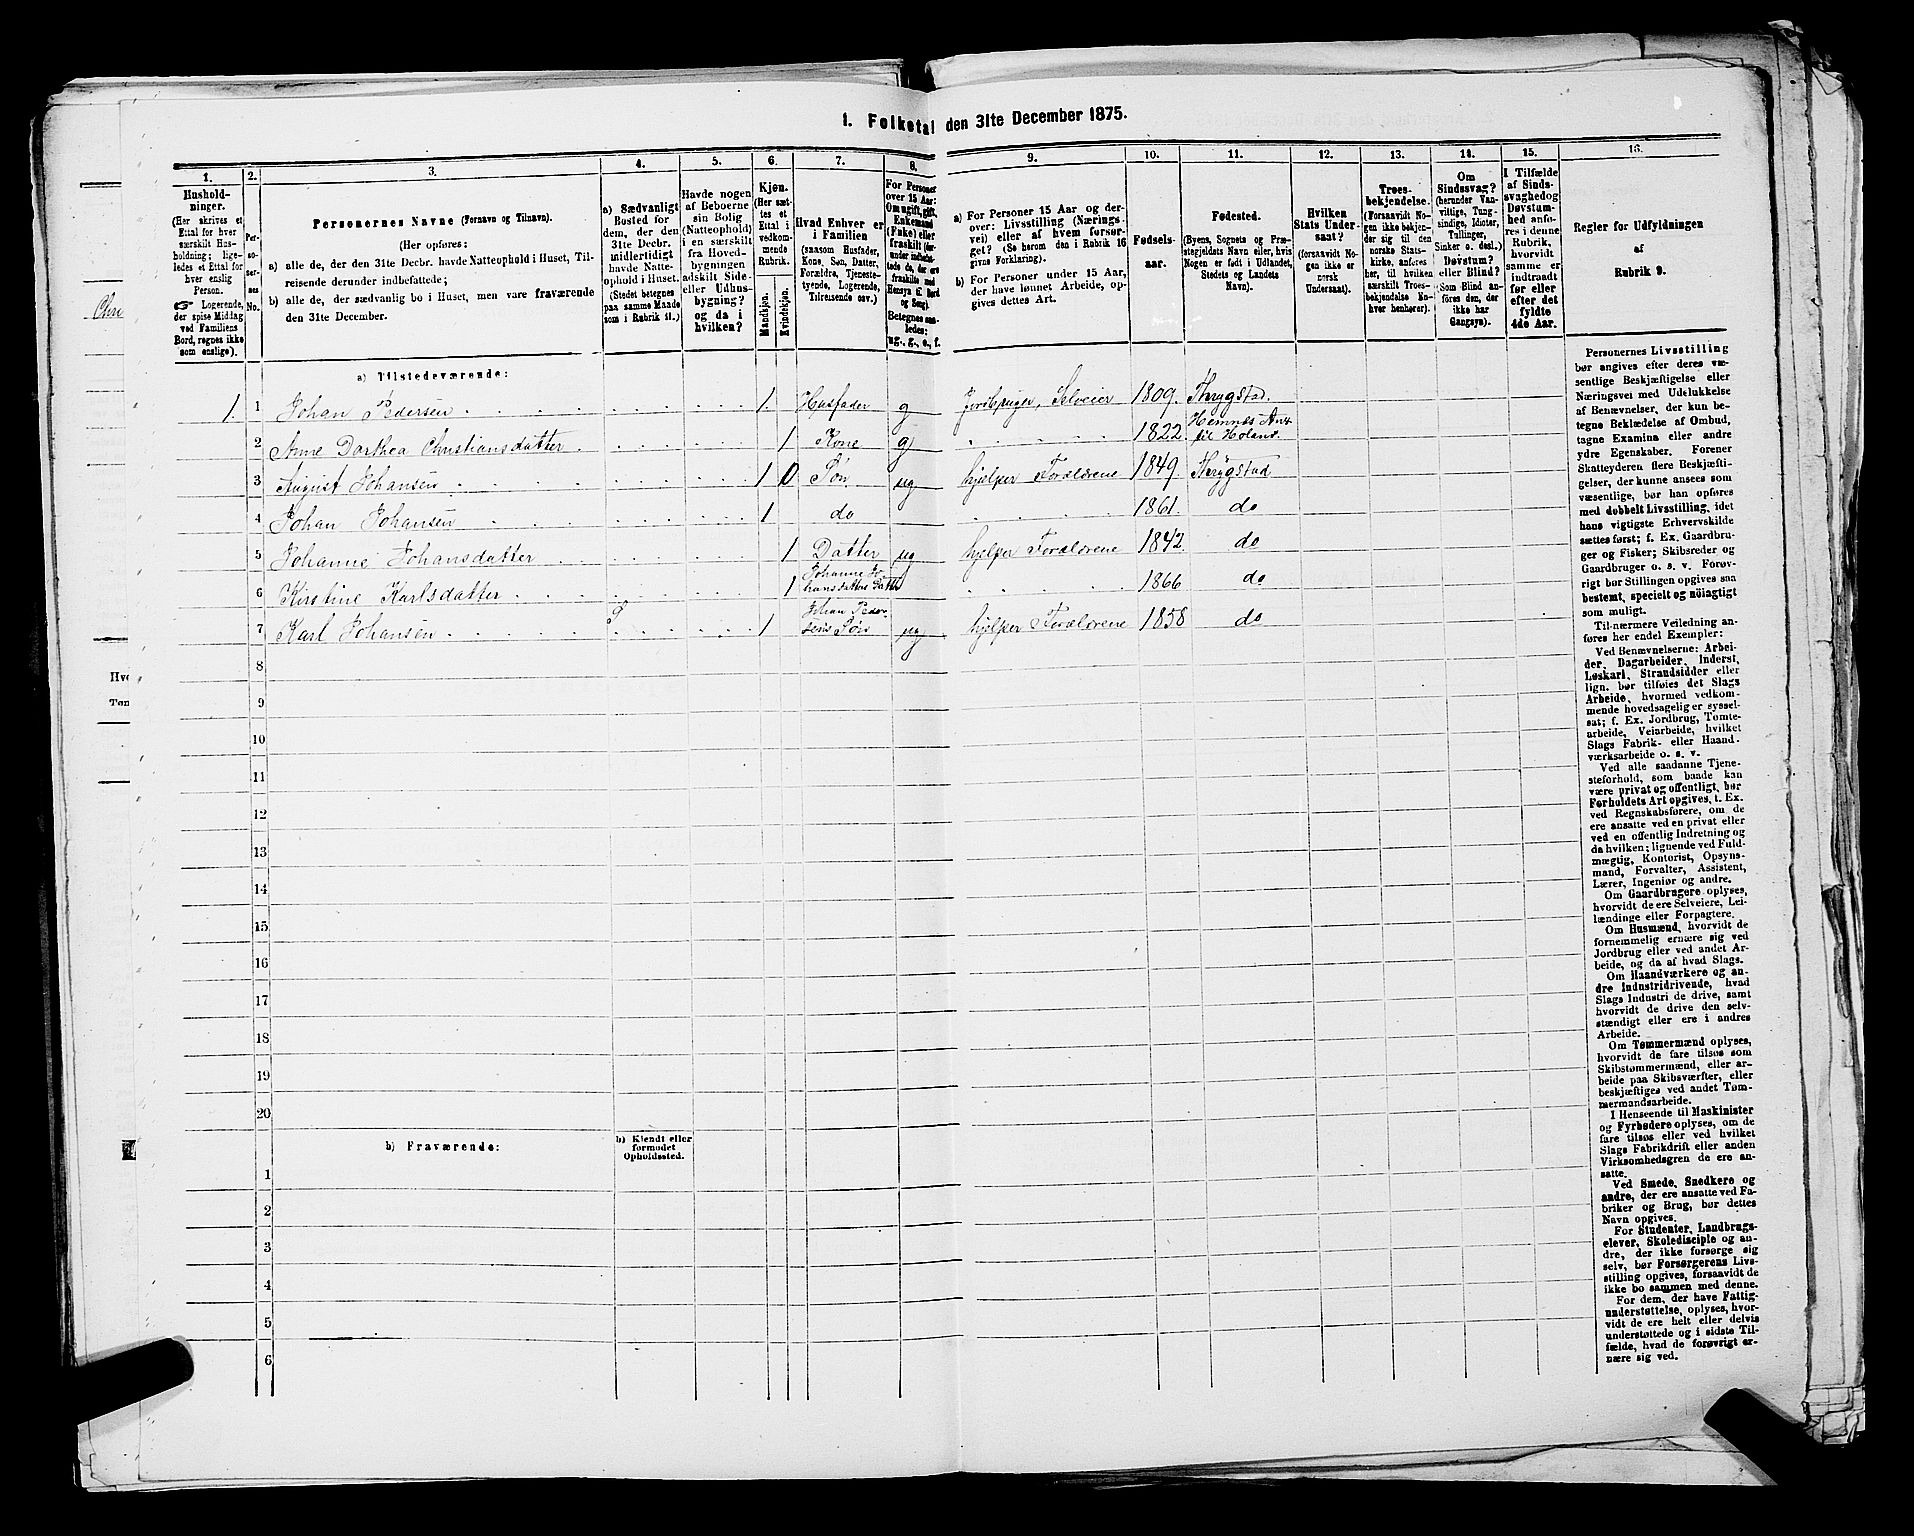 1. Folketal den 31te December 1875.
1. 2. 3. 4. 5. 6. 7. 8. 9. 10. 11. 12. 13. 14. 15. 16.
Hushold-
ninger.
(Her skrives et
Ettal for hver
særskilt Hus-
holdning; lige-
ledes et Ettal for
hver enslig
Person.
☞ Logerende,
der spise Middag
ved Familiens
Bord, regnes ikke
som enslige).
Per-
so-
ner-
nes
No.
Personernes Navne (Fornavn og Tilnavn).
(Her opføres:
a) alle de, der den 31te Decbr. havde Natteophold i Huset, Til-
reisende derunder indbefattede;
b) alle de, der sædvanlig bo i Huset, men vare fraværende
den 31te December.
a) Sædvanligt
Bosted for
dem, der den
31te Decbr.
midlertidigt
havde Natte-
ophold i Huset.
(Stedet betegnes
paa samme Maade
som i Rubrik 11.)
Havde nogen
af Beboerne
sin Bolig
(Natteophold)
i en særskilt
fra Hoved-
bygningen
adskilt Side-
eller Udhus-
bygning?
og da i
hvilken?
Kjøn.
(Her sæt-
tes et
Ettal i
vedkom-
mende
Rubrik.
Mandkjøn.
Kvindekjøn.
Hvad Enhver er
i Familien
(saasom Husfader,
Kone, Søn, Datter,
Forældre, Tjeneste-
tyende, Logerende,
Tilreisende osv.)
For Personer
over 15 Aar:
Om ugift, gift,
Enkemand
(Enke) eller
fraskilt (her-
under indbefat-
tede de, der ere
fraskilte med
Hensyn til Bord
og Seng).
Betegnes saa-
ledes:
ug., g., e., f.
a) For Personer 15 Aar og der-
over: Livsstilling (Nærings-
vei) eller af hvem forsør-
get? (Se herom den i Rubrik 16
givne Forklaring).
b) For Personer under 15 Aar,
der have lønnet Arbeide, op-
gives dettes Art.
Fødsels-
aar.
Fødested.
(Byens, Sognets og Præ-
stegjeldets Navn eller, hvis
Nogen er født i Udlandet,
Stedets og Landets
Navn).
Hvilken
Stats Under-
saat?
(forsaavidt No-
gen ikke er
norsk
Undersaat).
Troes-
bekjendelse.
(Forsaavidt No-
gen ikke bekjen-
der sig til den
norske Stats-
kirke, anføres
her, til hvilken
særskilt Troes-
bekjendelse En-
hver henhører).
Om
Sindssvag?
(herunder Van-
vittige, Tung-
sindige, Idioter,
Tullinger,
Sinker o. desl.)
Døvstum?
eller Blind?
(Som Blind an-
føres den, der
ikke har
Gangsyn).
I Tilfælde
af Sinds-
svaghed og
Døvstum-
hed anfø-
res i denne
Rubrik,
hvorvidt
samme er
indtraadt
før eller
efter det
fyldte
4de Aar.
Regler for Udfyldningen
af
Rubrik 9.
a) Tilstedeværende:
1. 1 Johan Pedersen 1. Husfader g Jordbruger, Selveier 1809. Thrygstad.
2 Anne Dorthea Christiansdatter 1 Kone g 1822 Hemnes Anx til Høland.
3 August Johansen 1 0 Søn ug hjelper Forældrene 1849. Thrygstad
4 Johan Johansen 1 do 1861. do
5 Johanne Johansdatter 1 Datter ug hjelper Forældrene 1842. do
6 Kirstine Karlsdatter 1 Johanne Jo-
hansdatters Datter 1866 do
7 Karl Johansen 1 Johan Peder-
sens Søn ug hjelper Forældrene 1858 do
8
9
10
11
12
13
14
15
16
17
18
19
20
b) Fraværende:
b) Kjendt eller
formodet
Opholdssted.
1
2
3
4
5
6
Personernes Livsstilling
bør angives efter deres væ-
sentlige Beskjæftigelse eller
Næringsvei med Udelukkelse
af Benævnelser, der kun be-
tegne Beklædelse af Ombud,
tagne Examina eller andre
ydre Egenskaber. Forener
Skatteyderen flere Beskjæfti-
gelser, der kunne ansees som
væsentlige, bør han opføres
med dobbelt Livsstilling, idet
hans vigtigste Erhvervskilde
sættes først; f. Ex. Gaardbru-
ger og Fisker; Skibsreder og
Gaardbruger o. s. v. Forøv-
rigt bør Stillingen opgives saa
bestemt, specielt og nøiagtigt
som muligt.
Til nærmere Veiledning an-
føres her endel Exempler:
Ved Benævnelserne: Arbei-
der, Dagarbeider, Inderst,
Løskarl, Strandsidder eller
lign. bør tilføies det Slags
Arbeide, hvormed vedkom-
mende hovedsagelig er syssel-
sat; f. Ex. Jordbrug, Tømte-
arbeide, Veiarbeide, hvilket
Slags Fabrik- eller Haand-
værksarbeide o. s. v.
Ved alle saadanne Tjene-
steforhold, som baade kan
være privat og offentligt, bør
Forholdets Art opgives, t. Ex.
ved Regnskabsførere, om de
ere ansatte ved en privat eller
ved en offentlig Indretning og
da hvilken; lignende ved Fuld-
mægtig, Kontorist, Opsyns-
mand, Forvalter, Assistent,
Lærer, Ingeniør og andre.
Om Gaardbrugere oplyses,
hvorvidt de ere Selveiere, Lei-
lændinge eller Forpagtere.
Om Husmænd, hvorvidt de
fornemmelig ernære sig ved
Jordbrug eller ved andet Ar-
beide, og da af hvad Slags.
Om Haandværkere og an-
dre Industridrivende, hvad
Slags Industri de drive, samt
hvorvidt de drive den selv-
stændigt eller ere i andres
Arbeide.
Om Tømmermænd oplyses,
hvorvidt de fare tilsøs som
Skibstømmermænd, eller ar-
beide paa Skibsværfter, eller
beskjæftiges ved andet Tøm-
mermandsarbeide.
I Henseende til Maskinister
og Fyrbødere oplyses, om de
fare tilsøs eller ved hvilket
Slags Fabrikdrift eller anden
Virksomhedsgren de ere an-
satte.
Ved Smede, Snedkere og
andre, der ere ansatte ved Fa-
briker og Brug, bør dettes
Navn opgives.
For Studenter, Landbrugs-
elever, Skoledisciple og an-
dre, der ikke forsørge sig
selv, bør Forsørgerens Livs-
stilling opgives, forsaavidt de
ikke bo sammen med denne.
For dem, der have Fattig-
understøttelse, oplyses, hvor-
vidt de ere helt eller delvis
understøttede og i sidste Til-
fælde, hvad de forøvrigt er-
nære sig ved.